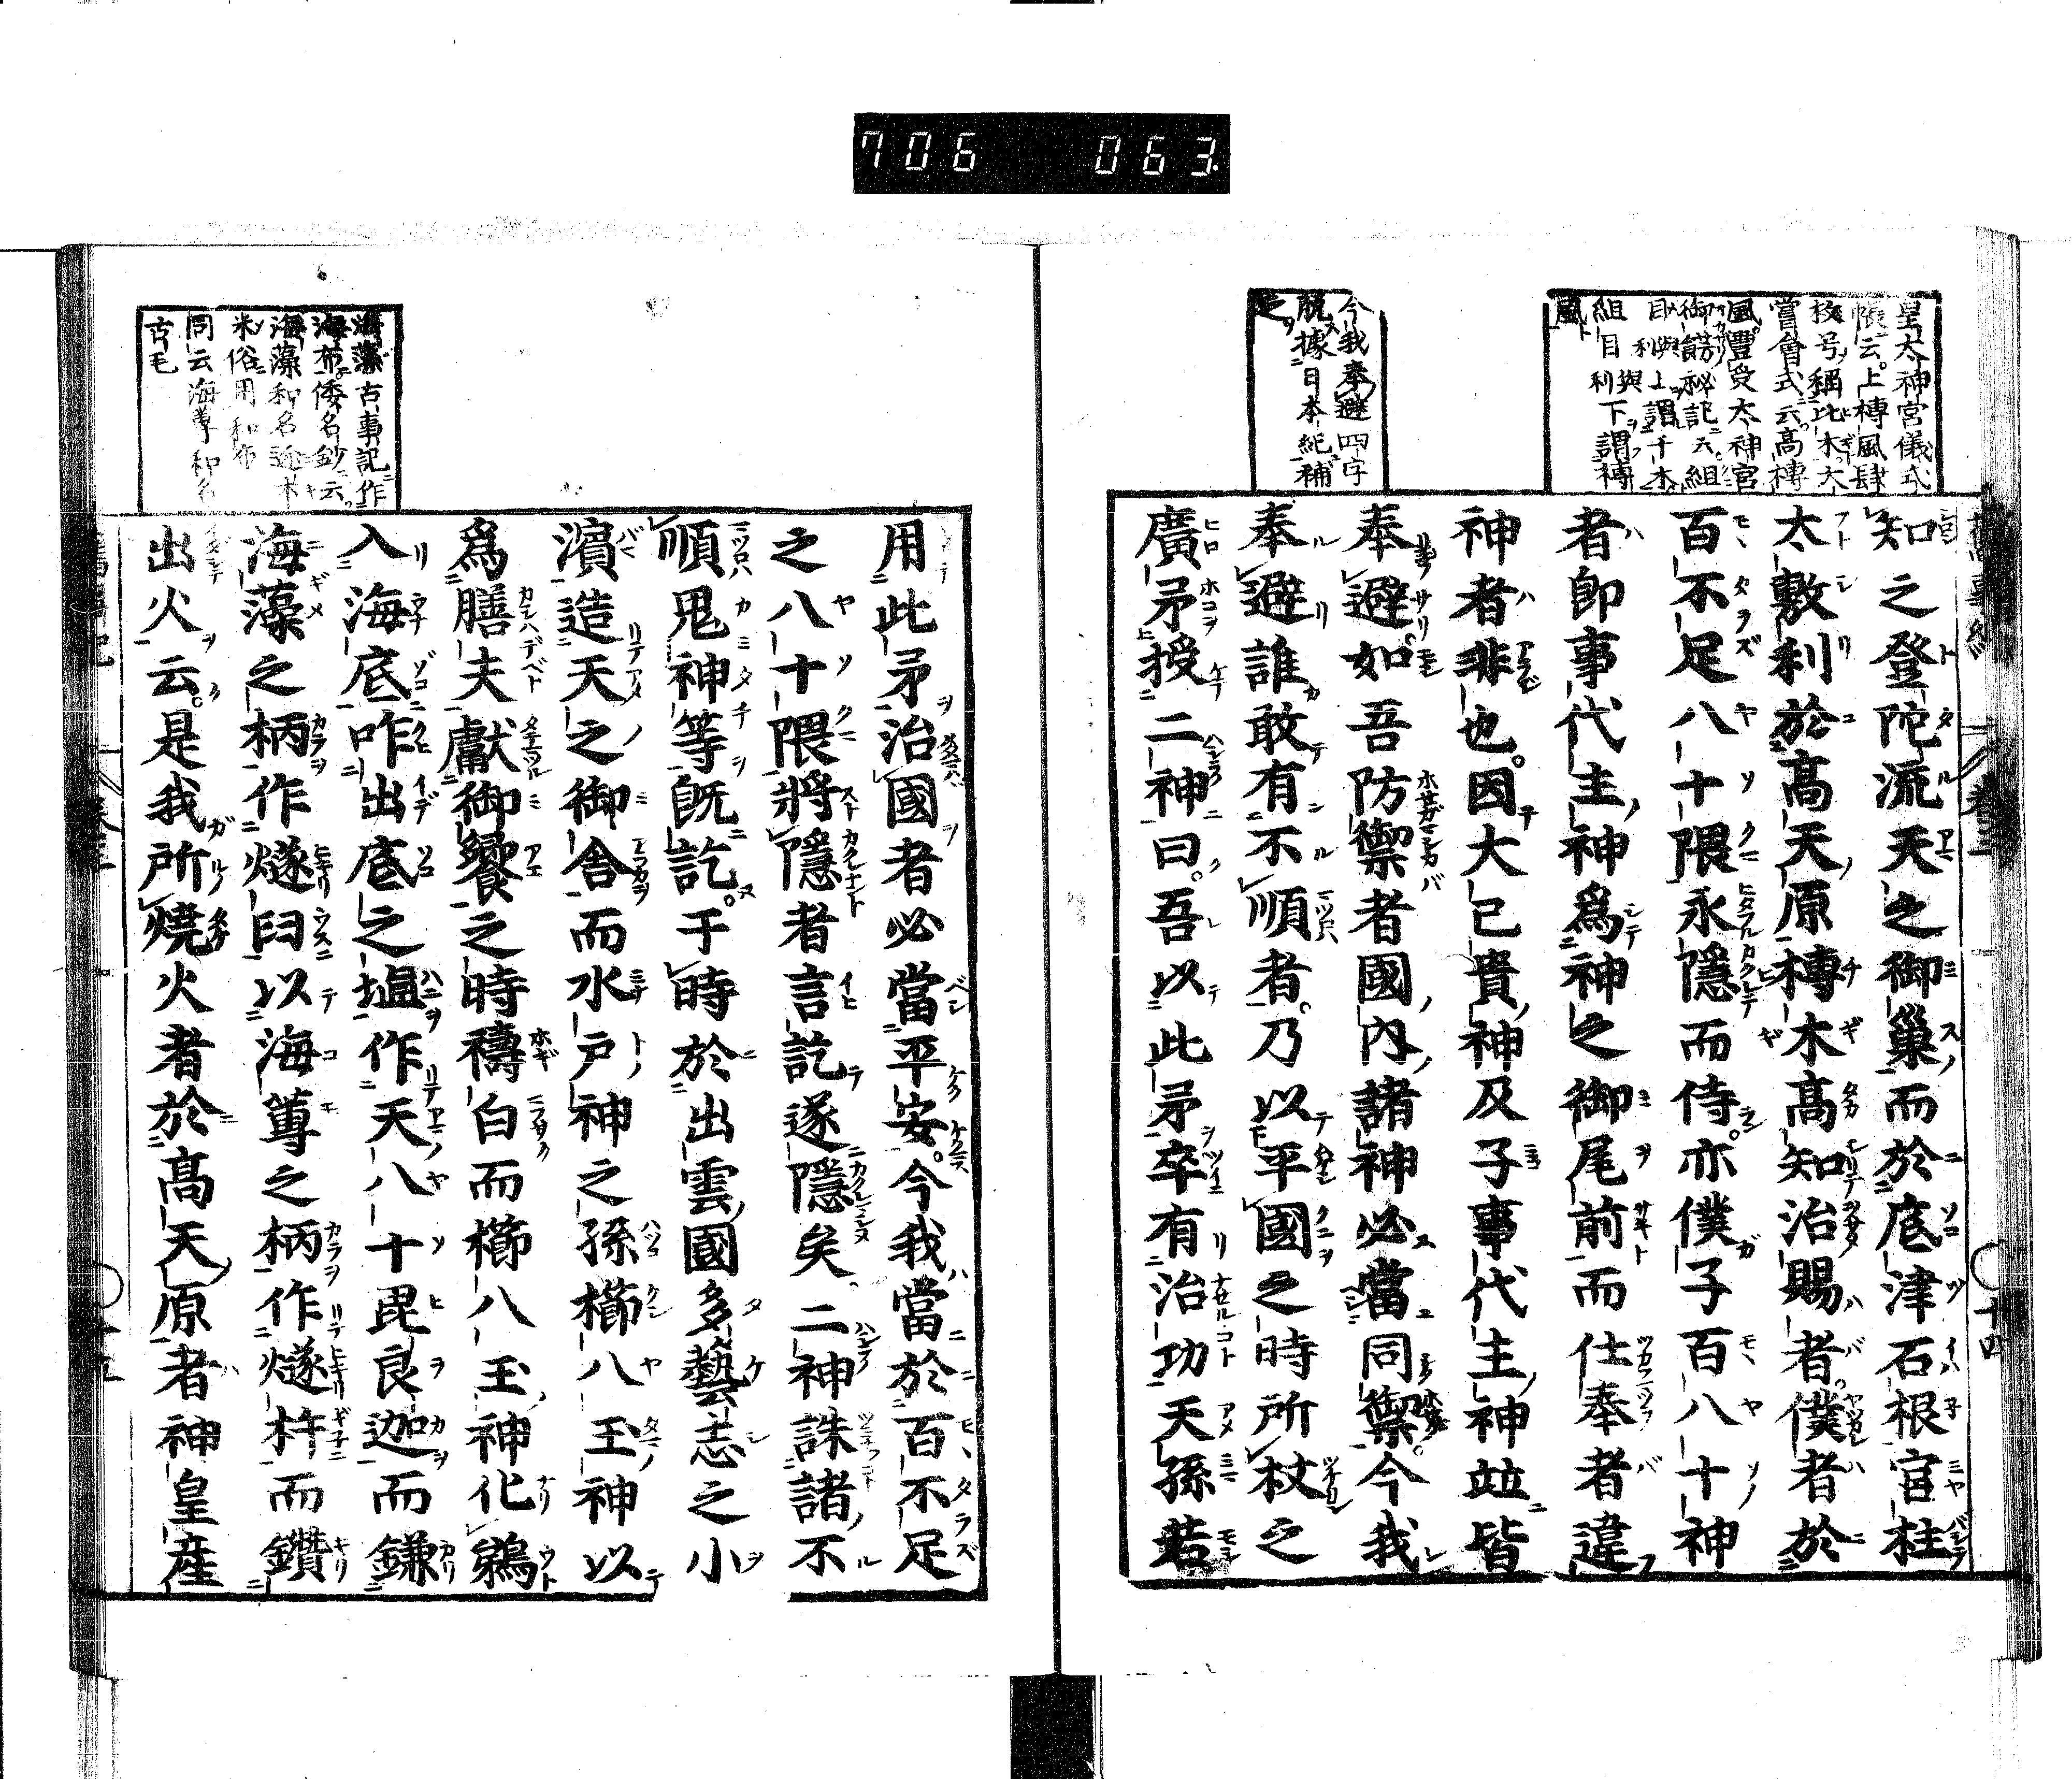 706 063
皇太神宮儀式
帳云上槫風肆
枚号稱比木大
嘗會式云高槫
風豐受太神宮
御餝祕記云組
目與利上謂千木
組目與利下謂槫
風
今我奉避四字
脱據日本紀補
之
知之登陀流天之御巢而於底津石根宮柱
太敷利於高天原槫木高知治賜者僕者於
百不足八十隈永隱而侍亦僕子百八十神
者卽事代主神爲神之御尾前而仕奉者違
神者非也因大己貴神及子事代主神竝皆
奉避如吾防禦者國內諸神必當同禦今我
奉避誰敢有不順者乃以平國之時所杖之
廣矛授二神曰吾以此矛卒有治功天孫若
十四
海藻古事記作
海布倭名鈔云
海藻和名迩木
米俗用和布
同云海蓴和名
古毛
用此矛治國者必當平安今我當於百不足
之八十隈將隱者言訖遂隱矣二神誅諸不
順鬼神等旣訖于時於出雲國多藝志之小
濵造天之御舎而水戸神之孫櫛八玉神以
爲膳夫獻御饗之時禱白而櫛八玉神化鵜
入海底咋出底之埴作天八十毘良迦而鎌
海藻之柄作燧臼以海蓴之柄作燧杵而鑽
出火云是我所燒火者於高天原者神皇産